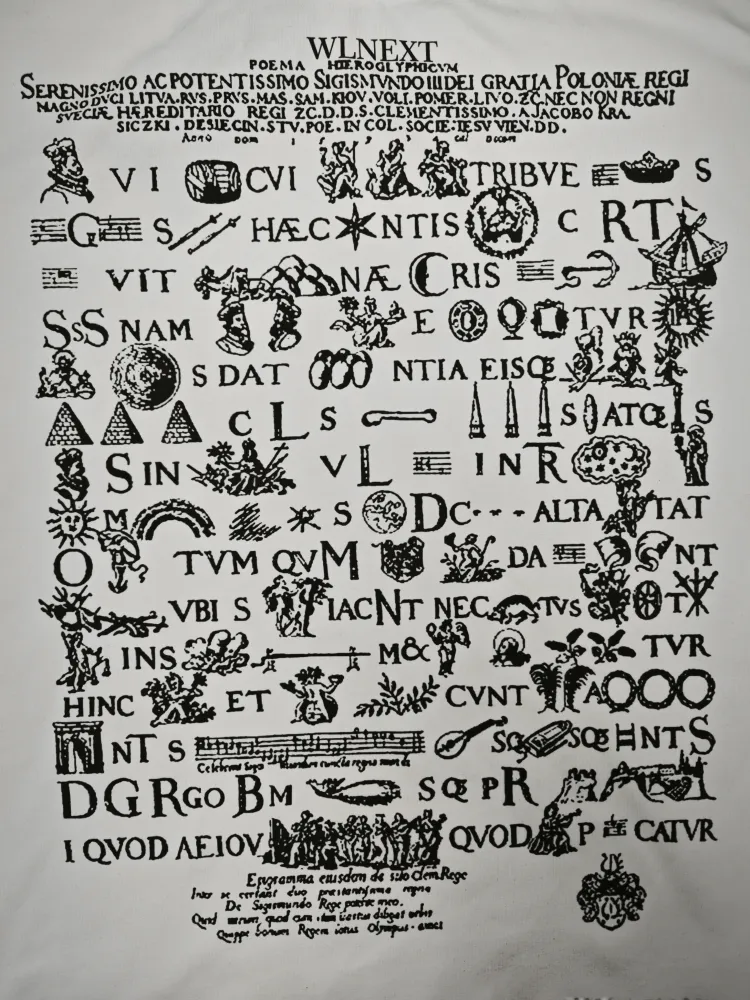 WLNEXT
POEMA HIEROGLYPHICVM
SERENISSIMO AC POTENTISSIMO SIGISMVNDO III DEI GRATIA POLONIÆ REGI
MAGNO DVCI LITVA. RVS. PRVS. MAS. SAM. KIOV. VOLI. POMER. LIVO. ZC. NEC NON REGNI
SVECIÆ HÆREDITARIO REGI ZC. D. D. S. CLEMENTISSIMO. A JACOBO KRA.
SICZKI. DESIECIN. STV. POE. IN COL. SOCIE: IESV VIEN. DD.
VI CVI TRIBVE S
G S HÆC NTIS C RT
VIT NÆ CRIS
SsS NAM E TVR IHS
S DAT NTIA EISQE
C L S S ATQE S
S IN V L IN TR
M S DC - - - ALTA TAT
O TVM QVM DA NT
VBI S IACNT NEC TVS T
INS M& TVR
HINC ET CVNT A
NT S SQE SQE NTS
D G RGO BM SQE PR
I QVOD AEIOV QVOD P CATVR
Epigramma eiusdem de suo Clem. Rege
Inter se certant duo præstantissima regna
De Sigismundo Rege potente meo.
Quid mirum, quod eum
Quippe bonum Regem totus Olympus amet